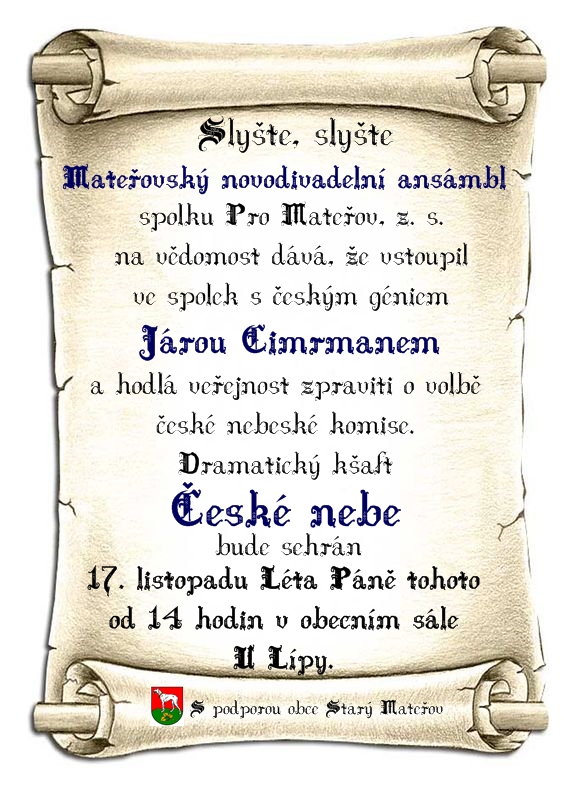 Slyšte, slyšte
Mateřovský novodivadelní ansámbl
spolku Pro Mateřov, z. s.
na vědomost dává, že vstoupil
ve spolek s českým géniem
Járou Cimrmanem
a hodlá veřejnost zpraviti o volbě
české nebeské komise.
Dramatický kšaft
České nebe
bude sehrán
17. listopadu Léta Páně tohoto
od 14 hodin v obecním sále
U Lípy.
S podporou obce Starý Mateřov